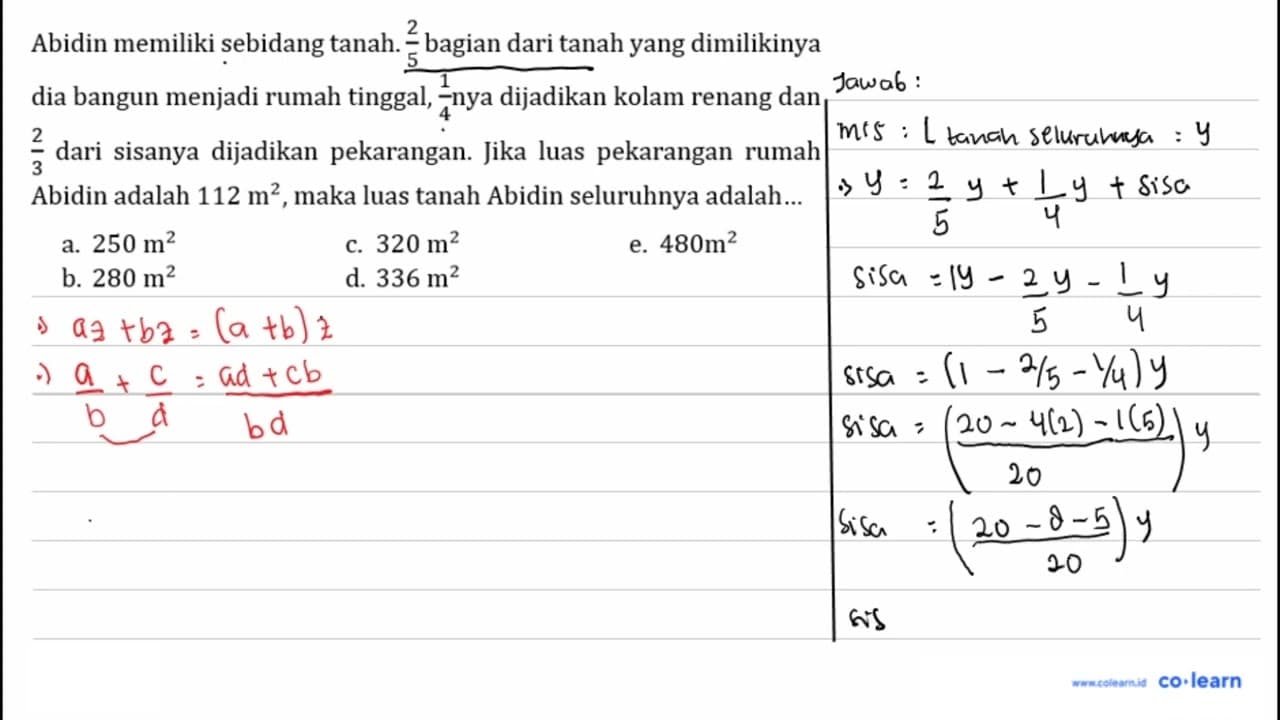 Abidin memiliki sebidang tanah. 2/5 bagian dari tanah yang dimilikinya
dia bangun menjadi rumah tinggal, 1/4 nya dijadikan kolam renang dan
2/3 dari sisanya dijadikan pekarangan. Jika luas pekarangan rumah
Abidin adalah 112 m², maka luas tanah Abidin seluruhnya adalah...
a. 250 m² c. 320 m² e. 480m²
b. 280 m² d. 336 m²
az + bz = (a + b) z
a/b + c/d = (ad + cb)/bd
Jawab :
mis : L tanah seluruhnya : y
y = 2/5 y + 1/4 y + sisa
sisa = 1y - 2/5 y - 1/4 y
sisa = (1 - 2/5 - 1/4) y
sisa = ((20 - 4(2) - 1(5))/20) y
sisa = ((20 - 8 - 5)/20) y
sis
www.colearn.id co·learn